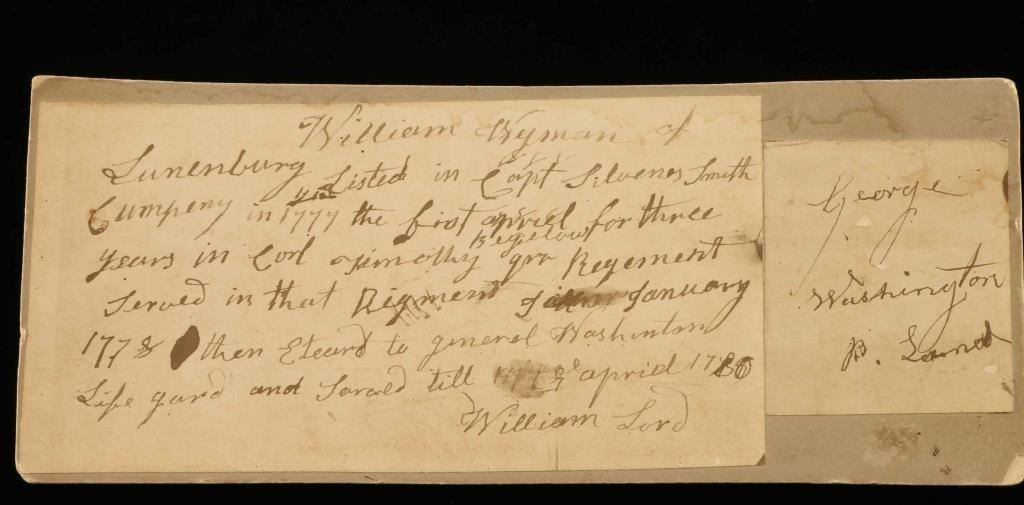 William Wyman of
Lunenburg Listed in Capt Silvenes Smith
Cumpeny in 1777 the first apriel for three
years in Corl Timothy Begelow Regement
Served in that Rigment January
1778 then to general Washinton
Life gard and Sarved till apriel 1780
William Lord
George
Washington
B. Land